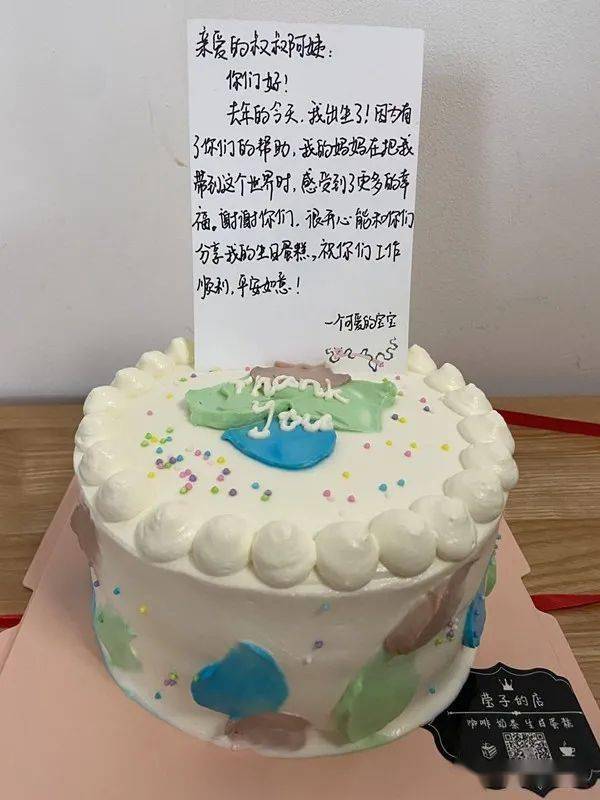 亲爱的叔叔阿姨：
你们好！
去年的今天，我出生了！因为有
了你们的帮助，我的妈妈在把我
带到这个世界时，感受到了更多的幸
福。谢谢你们，很开心能和你们
分享我的生日蛋糕，祝你们工作
顺利，平安如意！
一个可爱的宝宝
Thank
You
莹子的店
咖啡 奶茶 生日蛋糕